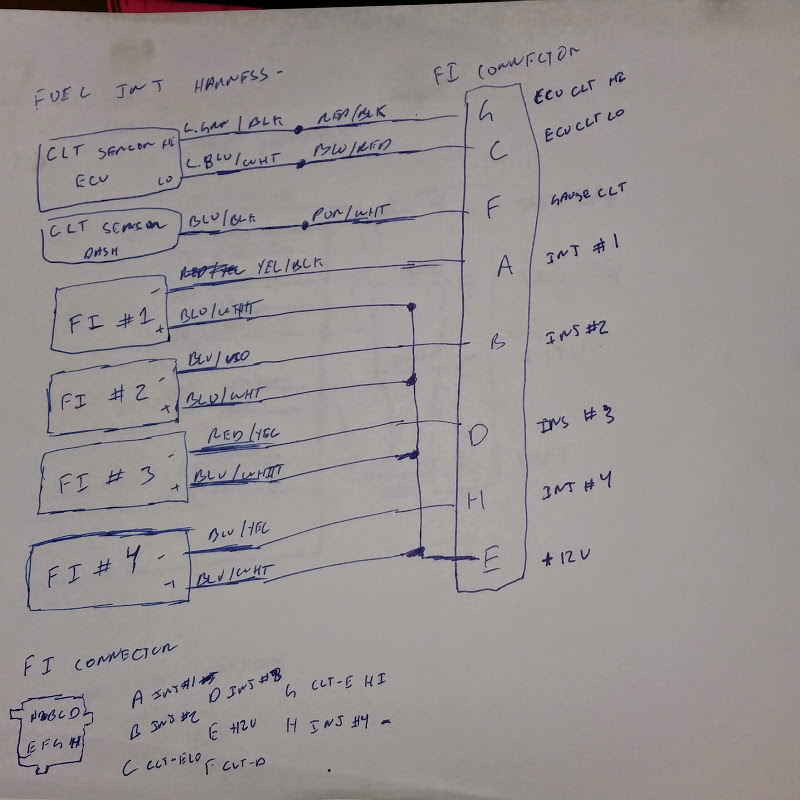 FUEL INJ HARNESS-
FI CONNECTOR
CLT SENSOR HI
ECU LO
L.GRN/BLK RED/BLK
L.BLU/WHT BLU/RED
G ECU CLT HI
C ECU CLT LO
CLT SENSOR
DASH
BLU/BLK PUR/WHT
F GAUGE CLT
YEL/BLK
A INJ #1
FI #1 - +
BLU/WHT
BLU/VIO
B INJ #2
FI #2 - +
BLU/WHT
RED/YEL
D INJ #3
FI #3 - +
BLU/WHT
BLU/YEL
H INJ #4
FI #4 - +
BLU/WHT
E +12V
FI CONNECTOR
A INJ#1 D INJ#3 G CLT-E HI
B INJ#2 E +12V H INJ #4 -
C CLT-ELO F CLT-D
ABCD
EFGH